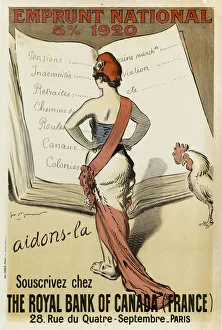 EMPRUNT NATIONAL
5% 1920
Pensions
Indemnités
Retraites
Chemins
Routes
Canaux
Colonies
aidons-la
Souscrivez chez
THE ROYAL BANK OF CANADA (FRANCE)
28, Rue du Quatre-Septembre, PARIS